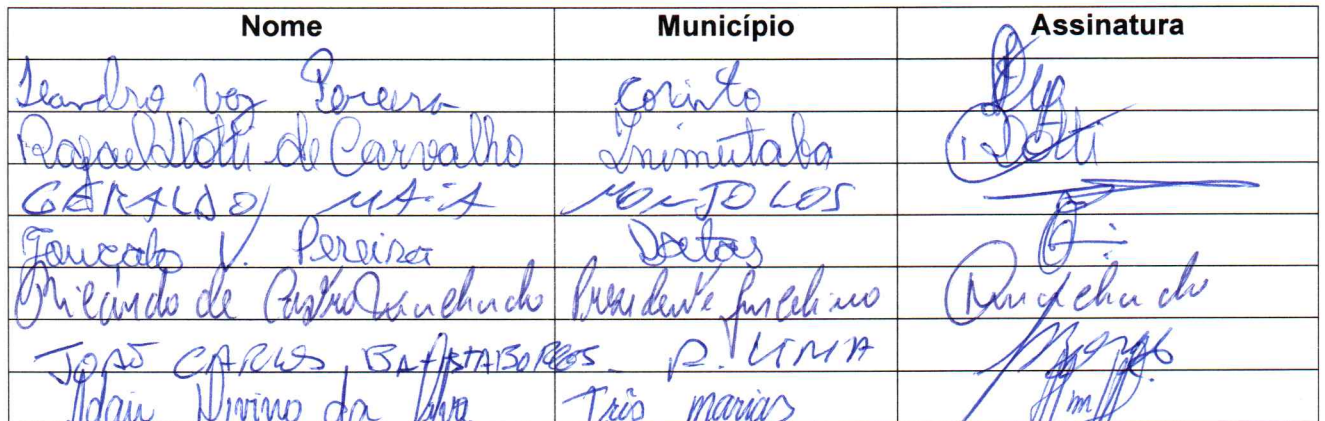 Nome Município Assinatura
Leandro Vaz Pereira Corinto
Rafael Dotti de Carvalho Inimutaba Dotti
GERALDO MAIA MONJOLOS
Gonçalo V. Pereira Datas
Ricardo de Castro Machado Presidente Juscelino Machado
JOÃO CARLOS BATISTA BORGES - A. LIMA Borges
Adair Divino da Silva Três marias